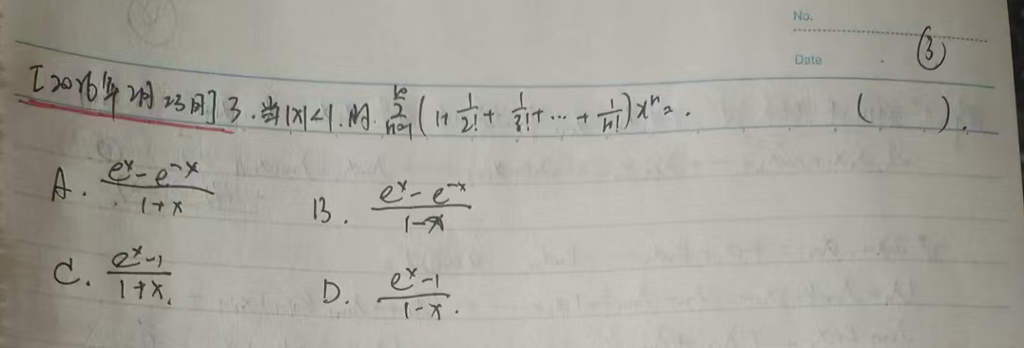 No.
Date
③
[2026年2月23日] 3. 当|x|<1.时. ∑_{n=1}^{∞}(1+1/2!+1/3!+⋯+1/n!)xⁿ=. ( ).
A. (eˣ-e⁻ˣ)/(1+x) B. (eˣ-e⁻ˣ)/(1-x)
C. (eˣ-1)/(1+x). D. (eˣ-1)/(1-x).